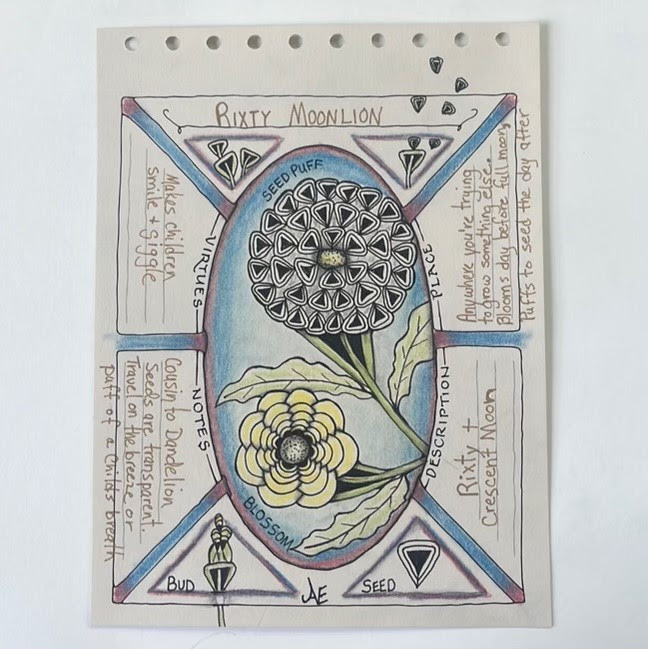 RIXTY MOONLION
SEED PUFF
VIRTUES
Makes children
smile + giggle
PLACE
Anywhere you're trying
to grow something else.
Blooms day before full moon,
Puffs to seed the day after
NOTES
Cousin to Dandelion
Seeds are transparent.
Travel on the breeze or
puff of a childs breath
DESCRIPTION
Rixty +
Crescent Moon
BLOSSOM
BUD
AE
SEED